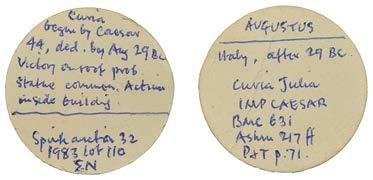 Curia
begun by Caesar
44, ded. by Aug 29 BC
Victory on roof prob.
statue commem. Actium
inside building
Spink auction 32
1983 lot 110
ΣN
AUGUSTUS
Italy, after 29 BC
Curia Julia
IMP CAESAR
BMC 631
Ashm 217 ff
P+T p. 71.